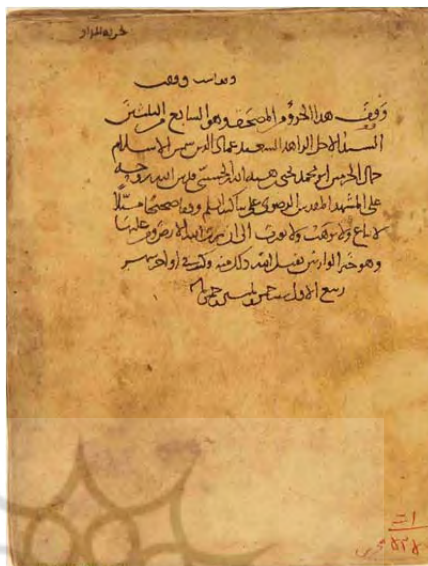 وقف هذا الجزؤ من المصحف وهو السابع من الثلثين
السيد الاجل الزاهد السعيد عماد الدين شمس الاسلام
جمال الحرمين ابو محمد يحيى بن هبة الله الحسيني قدس الله روحه
على المشهد المقدس الرضوي على ساكنه السلم وقفا صحيحا
لا يباع ولا يوهب ولا يورث الى ان يرث الله الارض ومن عليها
وهو خير الوارثين تقبل الله ذلك منه وكتب في اواخر شهر
ربيع الاول سنة